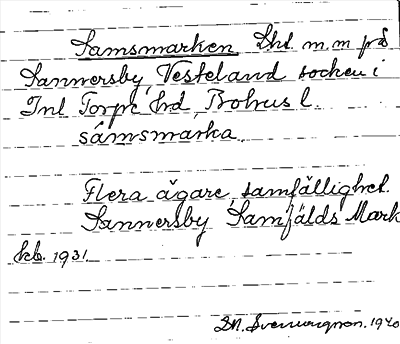 Samsmarken Skt m.m på
Sannersby, Vesteland socken i
Inl Torpe hd, Bohus l.
sámsmarka.
Flera ägare, samfällighet.
Sannersby Samfälds Mark
kb. 1931.
1940